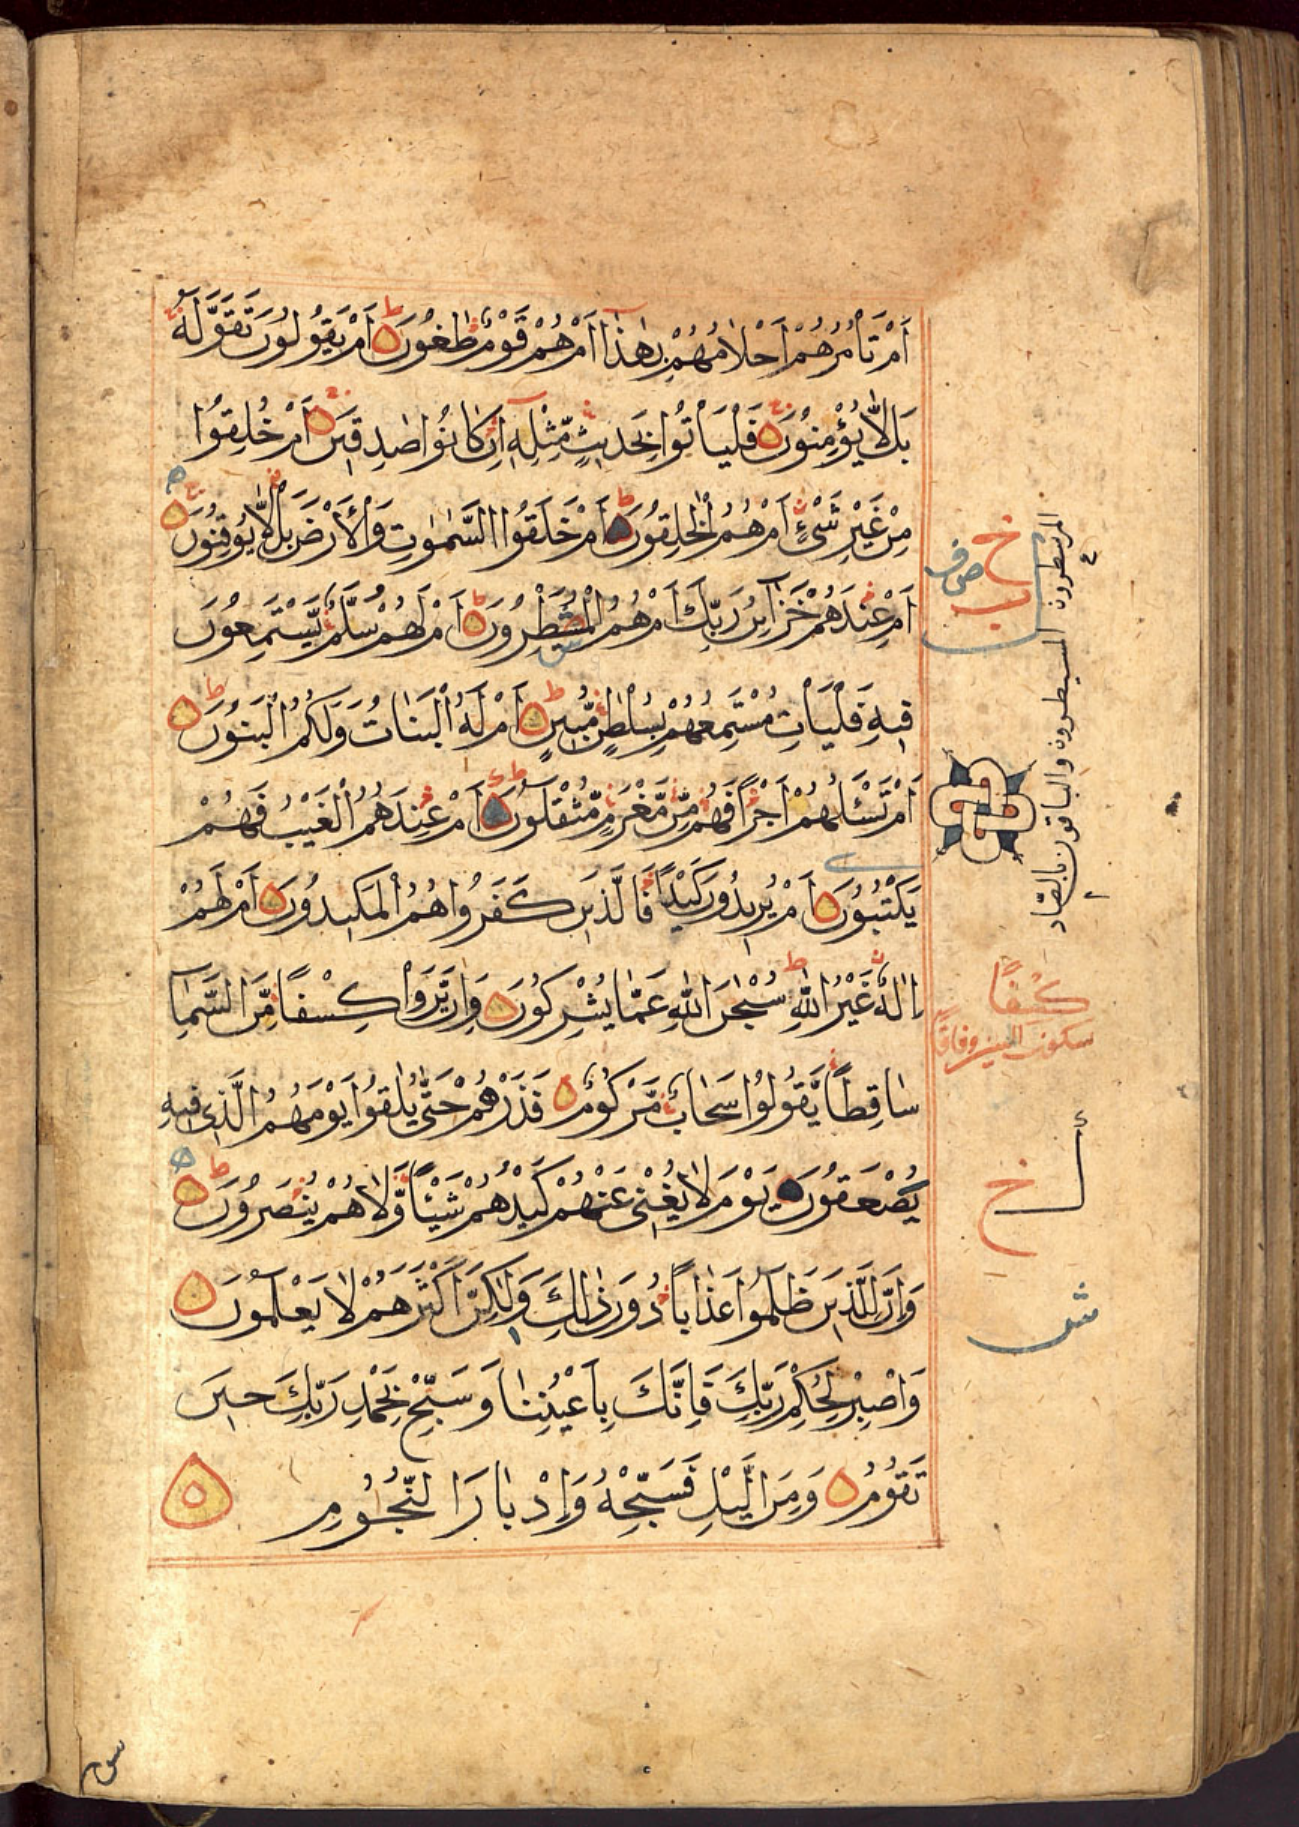 اَمْ تَأْمُرُهُمْ اَحْلَامُهُمْ بِهٰذَا اَمْ هُمْ قَوْمٌ طٰغُوْنَ اَمْ يَقُوْلُوْنَ تَقَوَّلَهٗ
بَلْ لَّا يُؤْمِنُوْنَ فَلْيَأْتُوْا بِحَدِيْثٍ مِّثْلِهٖ اِنْ كَانُوْا صٰدِقِيْنَ اَمْ خُلِقُوْا
مِنْ غَيْرِ شَيْءٍ اَمْ هُمُ الْخٰلِقُوْنَ اَمْ خَلَقُوا السَّمٰوٰتِ وَالْاَرْضَ بَلْ لَّا يُوْقِنُوْنَ
اَمْ عِنْدَهُمْ خَزَآئِنُ رَبِّكَ اَمْ هُمُ الْمُصَيْطِرُوْنَ اَمْ لَهُمْ سُلَّمٌ يَّسْتَمِعُوْنَ
فِيْهِ فَلْيَأْتِ مُسْتَمِعُهُمْ بِسُلْطٰنٍ مُّبِيْنٍ اَمْ لَهُ الْبَنَاتُ وَلَكُمُ الْبَنُوْنَ
اَمْ تَسْئَلُهُمْ اَجْرًا فَهُمْ مِّنْ مَّغْرَمٍ مُّثْقَلُوْنَ اَمْ عِنْدَهُمُ الْغَيْبُ فَهُمْ
يَكْتُبُوْنَ اَمْ يُرِيْدُوْنَ كَيْدًا فَالَّذِيْنَ كَفَرُوْا هُمُ الْمَكِيْدُوْنَ اَمْ لَهُمْ
اِلٰهٌ غَيْرُ اللّٰهِ سُبْحٰنَ اللّٰهِ عَمَّا يُشْرِكُوْنَ وَاِنْ يَّرَوْا كِسْفًا مِّنَ السَّمَآءِ
سَاقِطًا يَّقُوْلُوْا سَحَابٌ مَّرْكُوْمٌ فَذَرْهُمْ حَتّٰى يُلٰقُوْا يَوْمَهُمُ الَّذِيْ فِيْهِ
يُصْعَقُوْنَ يَوْمَ لَا يُغْنِيْ عَنْهُمْ كَيْدُهُمْ شَيْئًا وَّلَا هُمْ يُنْصَرُوْنَ
وَاِنَّ لِلَّذِيْنَ ظَلَمُوْا عَذَابًا دُوْنَ ذٰلِكَ وَلٰكِنَّ اَكْثَرَهُمْ لَا يَعْلَمُوْنَ
وَاصْبِرْ لِحُكْمِ رَبِّكَ فَاِنَّكَ بِاَعْيُنِنَا وَسَبِّحْ بِحَمْدِ رَبِّكَ حِيْنَ
تَقُوْمُ وَمِنَ الَّيْلِ فَسَبِّحْهُ وَاِدْبَارَ النُّجُوْمِ
المسيطرون والباقون بالصاد
كسفًا
سكون السين وفاقًا